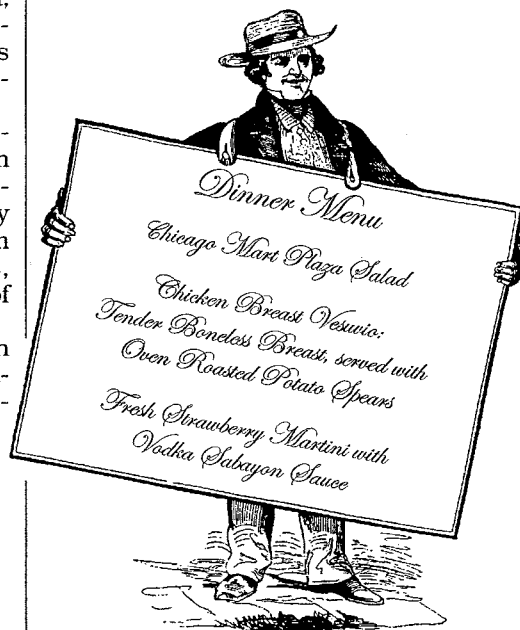 Dinner Menu
Chicago Mart Plaza Salad
Chicken Breast Vesuvio:
Tender Boneless Breast, served with
Oven Roasted Potato Spears
Fresh Strawberry Martini with
Vodka Sabayon Sauce